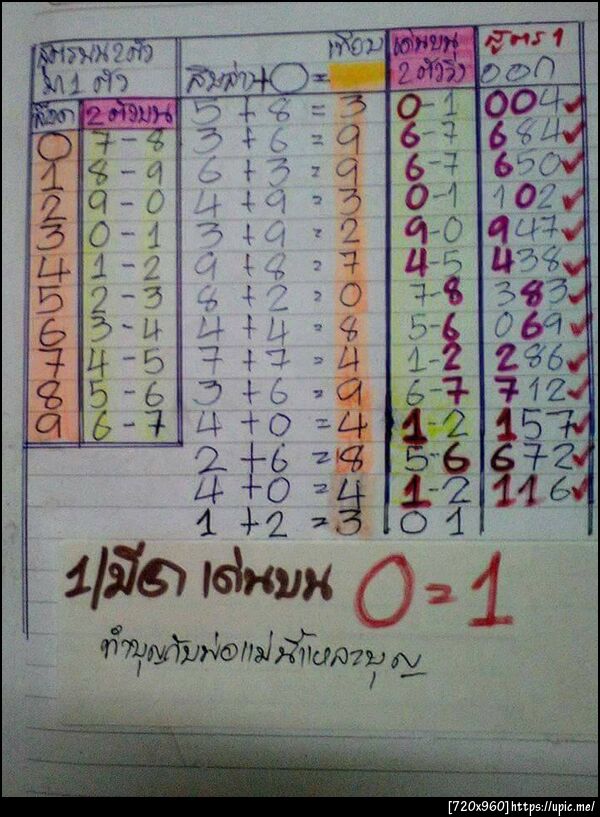 สูตรบน 2 ตัว
มา 1 ตัว
สิบล่าง 0 =
เทียบ
เด่นบน
2 ตัววิ่ง
สูตร 1
ออก
2 ตัวบน
5 + 8 = 3 0-1 004 ✓
0 7-8 3 + 6 = 9 6-7 684 ✓
1 8-9 6 + 3 = 9 6-7 650 ✓
2 9-0 4 + 9 = 3 0-1 102 ✓
3 0-1 3 + 9 = 2 9-0 947 ✓
4 1-2 9 + 8 = 7 4-5 438 ✓
5 2-3 8 + 2 = 0 7-8 383 ✓
6 3-4 4 + 4 = 8 5-6 069 ✓
7 4-5 7 + 7 = 4 1-2 286 ✓
8 5-6 3 + 6 = 9 6-7 712 ✓
9 6-7 4 + 0 = 4 1-2 157 ✓
2 + 6 = 8 5-6 672 ✓
4 + 0 = 4 1-2 116 ✓
1 + 2 = 3 0 1
1/มีค เด่นบน 0=1
ทำบุญกับพ่อแม่นี้แหละบุญ
[720x960]https://upic.me/